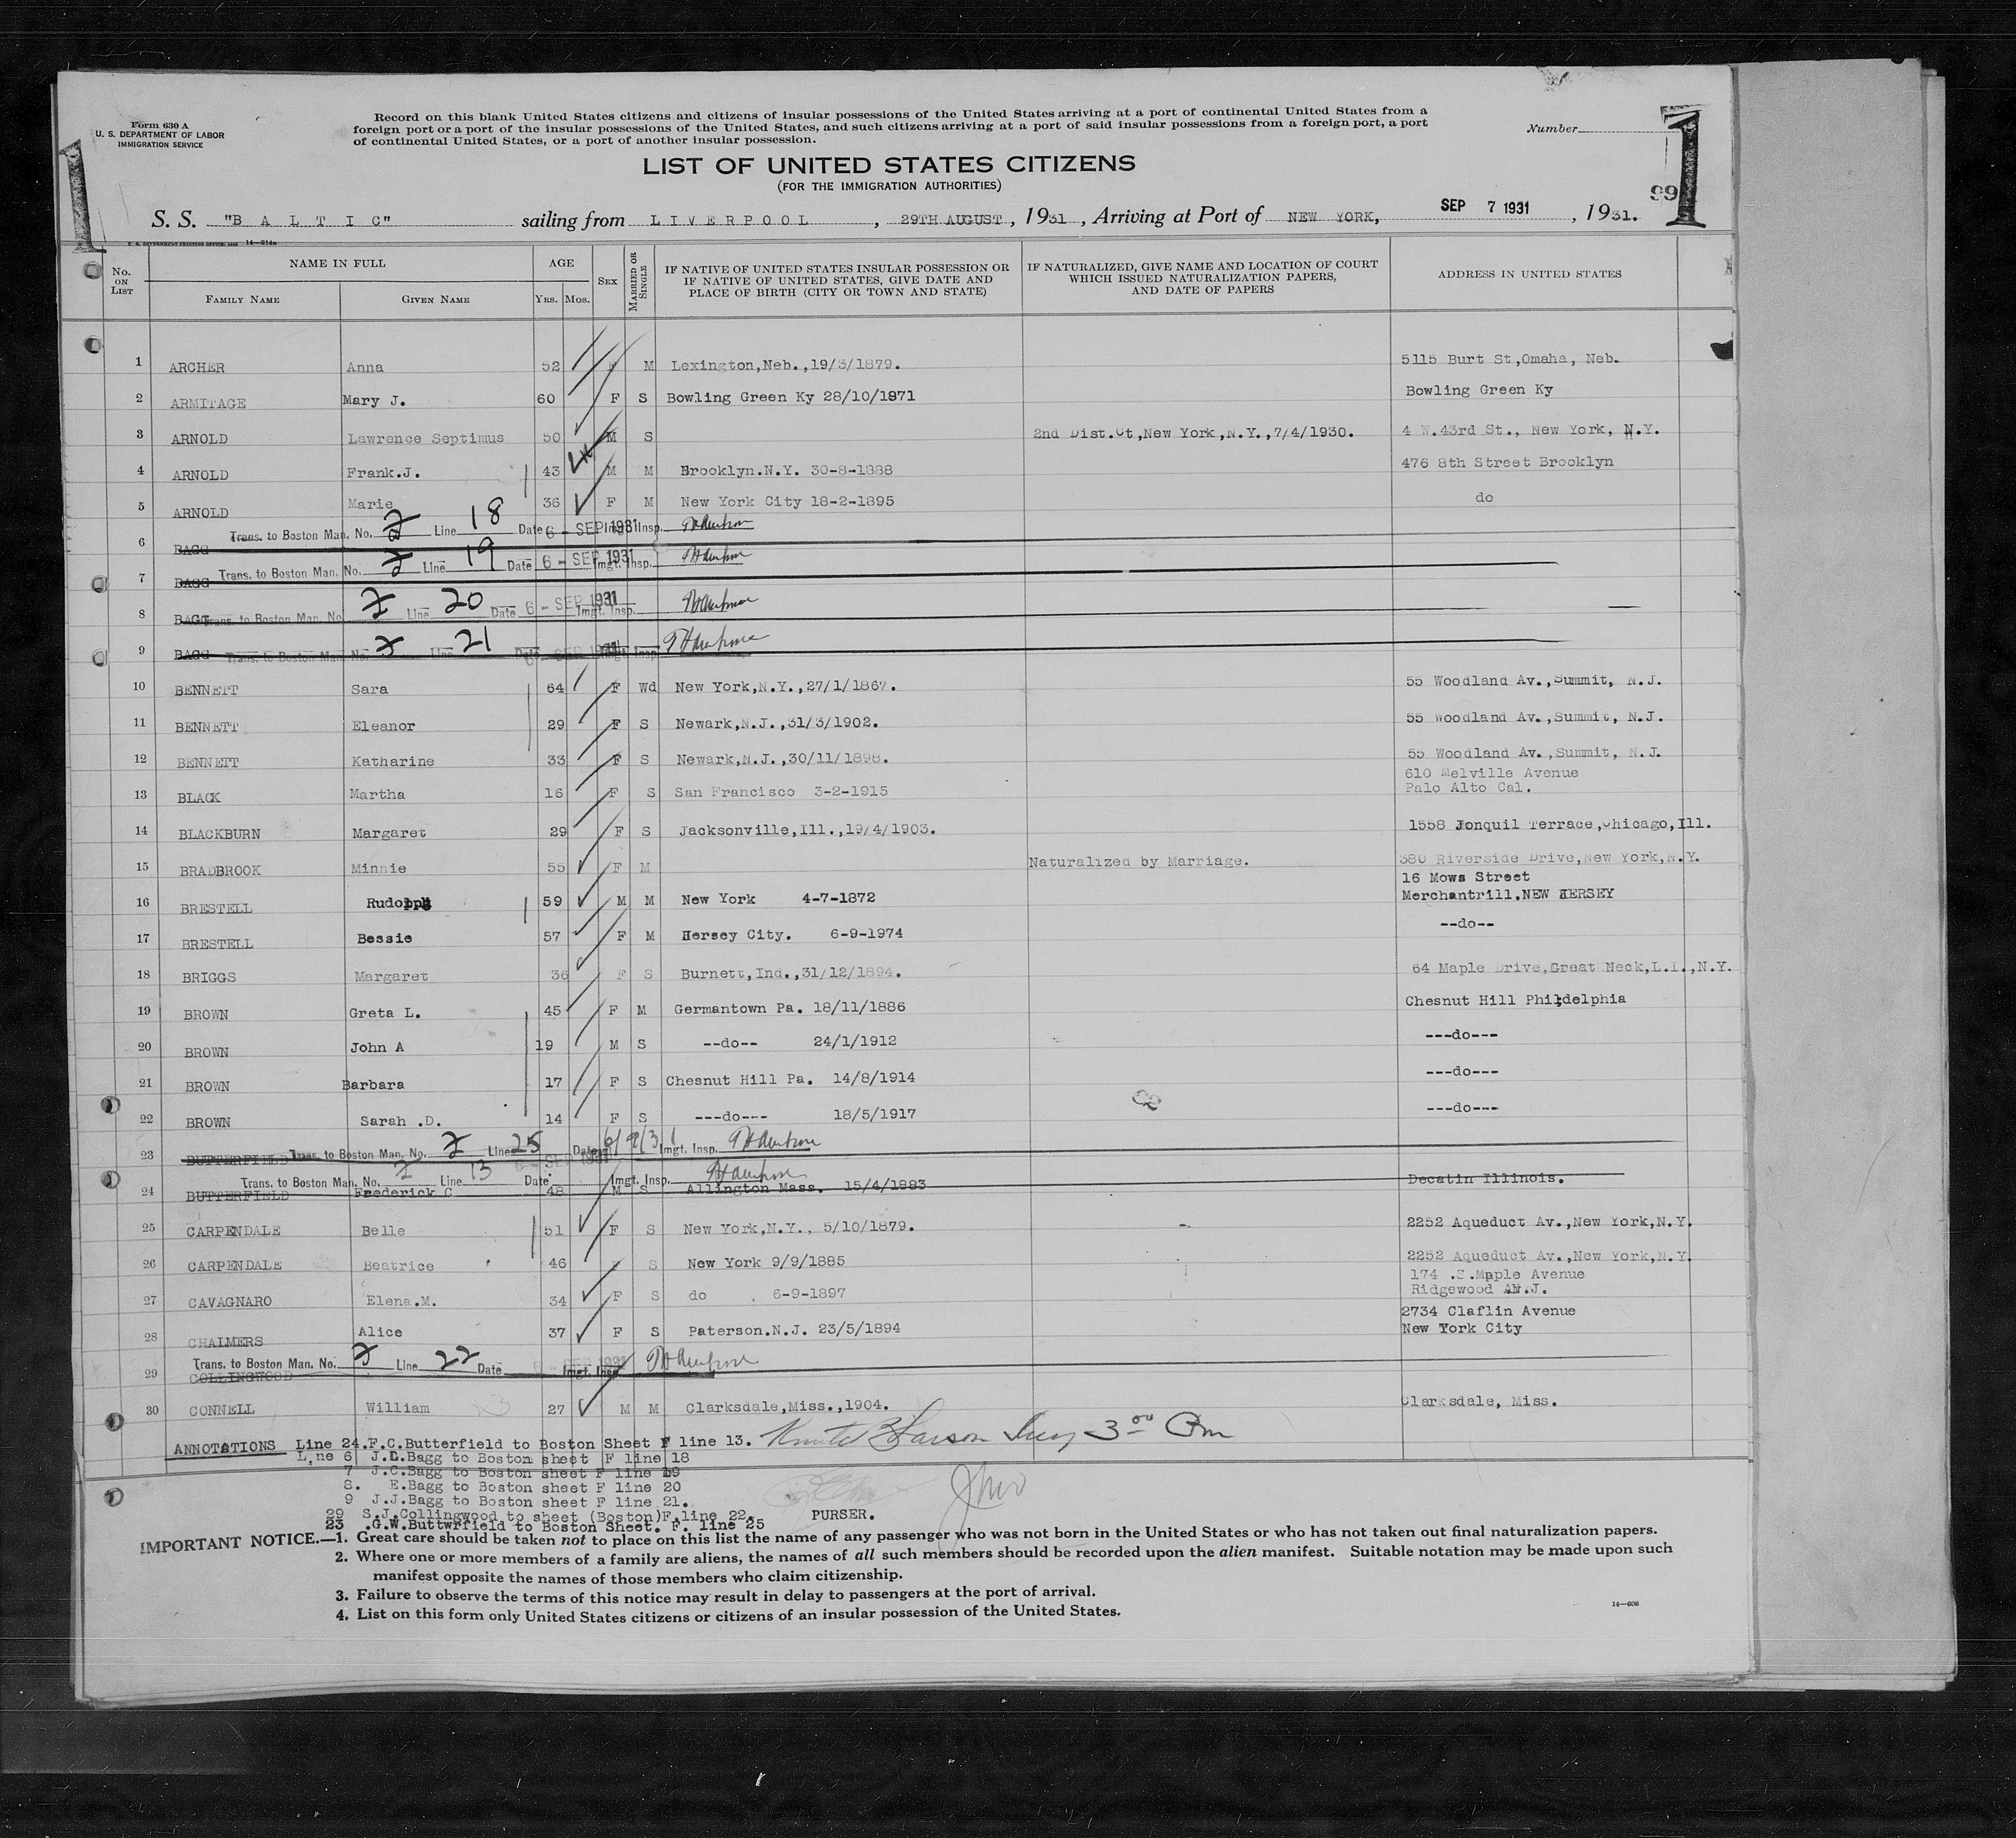 Form 630 A
U. S. DEPARTMENT OF LABOR
IMMIGRATION SERVICE
Record on this blank United States citizens and citizens of insular possessions of the United States arriving at a port of continental United States from a
foreign port or a port of the insular possessions of the United States, and such citizens arriving at a port of said insular possessions from a foreign port, a port
of continental United States, or a port of another insular possession.
Number
1
1
99
LIST OF UNITED STATES CITIZENS
(FOR THE IMMIGRATION AUTHORITIES)
S. S. "B A L T I C" sailing from L I V E R P O O L , 29TH AUGUST , 1931 , Arriving at Port of NEW YORK, SEP 7 1931 , 1931.
U. S. GOVERNMENT PRINTING OFFICE: 14—214a
No. ON LIST
NAME IN FULL
FAMILY NAME
GIVEN NAME
AGE
YRS. MOS.
SEX
MARRIED OR SINGLE
IF NATIVE OF UNITED STATES INSULAR POSSESSION OR
IF NATIVE OF UNITED STATES, GIVE DATE AND
PLACE OF BIRTH (CITY OR TOWN AND STATE)
IF NATURALIZED, GIVE NAME AND LOCATION OF COURT
WHICH ISSUED NATURALIZATION PAPERS,
AND DATE OF PAPERS
ADDRESS IN UNITED STATES
1 ARCHER Anna 52 F M Lexington,Neb.,19/3/1879. 5115 Burt St,Omaha, Neb.
2 ARMITAGE Mary J. 60 F S Bowling Green Ky 28/10/1871 Bowling Green Ky
3 ARNOLD Lawrence Septimus 50 M S 2nd Dist.Ct,New York,N.Y.,7/4/1930. 4 W.43rd St., New York, N.Y.
4 ARNOLD Frank.J. 43 M M Brooklyn.N.Y. 30-8-1888 476 8th Street Brooklyn
5 ARNOLD Marie 36 F M New York City 18-2-1895 do
6 BAGG Trans. to Boston Man. No. Line 18 Date 6 - SEP 1931 Imgt. Insp.
7 BAGG Trans. to Boston Man. No. Line 19 Date 6 - SEP 1931 Imgt. Insp.
8 BAGG Trans. to Boston Man. No. Line 20 Date 6 - SEP 1931 Imgt. Insp.
9 BAGG Trans. to Boston Man. No. Line 21 Date SEP 1931 Imgt. Insp.
10 BENNETT Sara 64 F Wd New York,N.Y.,27/1/1867. 55 Woodland Av.,Summit, N.J.
11 BENNETT Eleanor 29 F S Newark,N.J.,31/3/1902. 55 Woodland Av.,Summit, N.J.
12 BENNETT Katharine 33 F S Newark,N.J.,30/11/1898. 55 Woodland Av.,Summit, N.J.
13 BLACK Martha 16 F S San Francisco 3-2-1915 610 Melville Avenue
Palo Alto Cal.
14 BLACKBURN Margaret 29 F S Jacksonville,Ill.,19/4/1903. 1558 Jonquil Terrace,Chicago,Ill.
15 BRADBROOK Minnie 55 F M Naturalized by Marriage. 380 Riverside Drive,New York,N.Y.
16 BRESTELL Rudolph 59 M M New York 4-7-1872 16 Mows Street
Merchantrill.NEW HERSEY
17 BRESTELL Bessie 57 F M Hersey City. 6-9-1974 --do--
18 BRIGGS Margaret 36 F S Burnett,Ind.,31/12/1894. 64 Maple Drive,Great Neck,L.I.,N.Y.
19 BROWN Greta L. 45 F M Germantown Pa. 18/11/1886 Chesnut Hill Phildelphia
20 BROWN John A 19 M S --do-- 24/1/1912 ---do---
21 BROWN Barbara 17 F S Chesnut Hill Pa. 14/8/1914 ---do---
22 BROWN Sarah .D. 14 F S ---do--- 18/5/1917 ---do---
23 BUTTERFIELD Trans. to Boston Man. No. Line 25 Date 6/9/31 Imgt. Insp.
Trans. to Boston Man. No. Line 13 Date 6 - SEP 1931 Imgt. Insp.
24 BUTTERFIELD Frederick C 48 M S Allington Mass. 15/4/1883 Decatin Illinois.
25 CARPENDALE Belle 51 F S New York,N.Y., 5/10/1879. 2252 Aqueduct Av.,New York,N.Y.
26 CARPENDALE Beatrice 46 F S New York 9/9/1885 2252 Aqueduct Av.,New York,N.Y.
27 CAVAGNARO Elena.M. 34 F S do 6-9-1897 174 .S.Maple Avenue
Ridgewood N.J.
28 CHALMERS Alice 37 F S Paterson.N.J. 23/5/1894 2734 Claflin Avenue
New York City
29 COLLINGWOOD Trans. to Boston Man. No. Line 22 Date 6 - SEP 1931 Imgt. Insp.
30 CONNELL William 27 M M Clarksdale,Miss.,1904. Clarksdale, Miss.
ANNOTATIONS Line 24.F.C.Butterfield to Boston Sheet F line 13. Larson 3 00 Pm
L,ne 6 J.D.Bagg to Boston sheet F line 18
7 J.C.Bagg to Boston sheet F line 19
8. E.Bagg to Boston sheet F line 20
9 J.J.Bagg to Boston sheet F line 21.
29 S.J.Collingwood to sheet (Boston)F.line 22.
23 .G.W.Buttwrfield to Boston Sheet. F. line 25
PURSER.
IMPORTANT NOTICE.—1. Great care should be taken not to place on this list the name of any passenger who was not born in the United States or who has not taken out final naturalization papers.
2. Where one or more members of a family are aliens, the names of all such members should be recorded upon the alien manifest. Suitable notation may be made upon such
manifest opposite the names of those members who claim citizenship.
3. Failure to observe the terms of this notice may result in delay to passengers at the port of arrival.
4. List on this form only United States citizens or citizens of an insular possession of the United States.
14—606